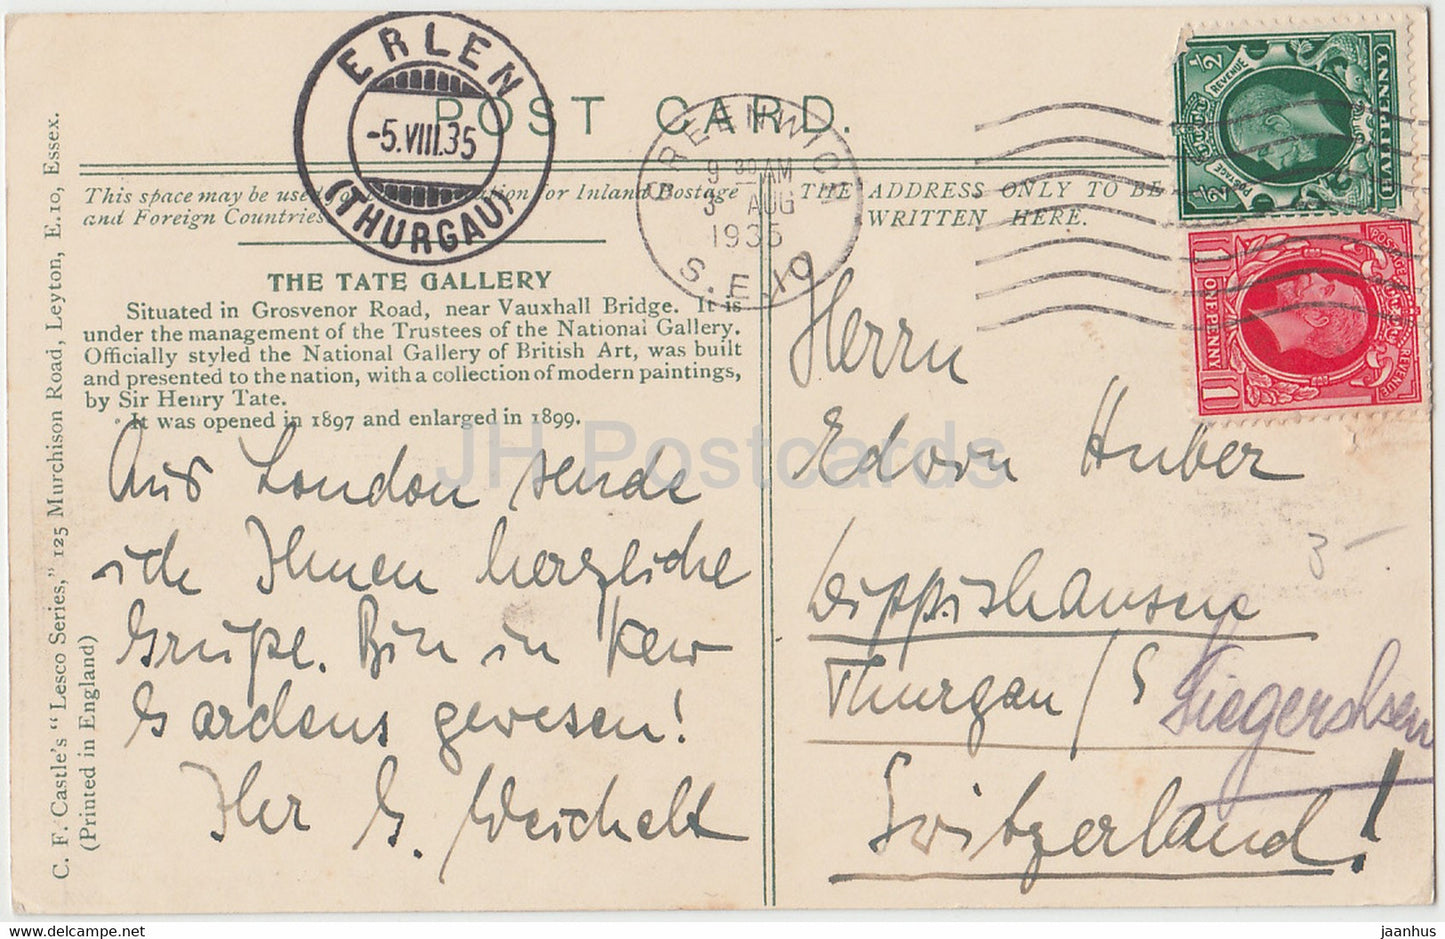 POST CARD.
ERLEN
-5.VIII.35
(THURGAU)
GREENWICH
9 30 AM
3 AUG
1935
S.E.10
½ POSTAGE REVENUE ½
HALFPENNY
POSTAGE REVENUE
1 ONE PENNY 1
This space may be used for Inland Postage
and Foreign Countries
THE ADDRESS ONLY TO BE
WRITTEN HERE.
THE TATE GALLERY
Situated in Grosvenor Road, near Vauxhall Bridge. It is
under the management of the Trustees of the National Gallery.
Officially styled the National Gallery of British Art, was built
and presented to the nation, with a collection of modern paintings,
by Sir Henry Tate.
It was opened in 1897 and enlarged in 1899.
Aus London sende
ich Ihnen herzliche
Grüße. Bin in Kew
Gardens gewesen!
Ihr G. Weichelt
Herrn
Edwin Huber
Dippishausen
Thurgau / S
Siegershsen
Switzerland!
3-
C. F. Castle's "Lesco Series," 125 Murchison Road, Leyton, E.10, Essex.
(Printed in England)
JH Postcards
eBay.com
jaanhus